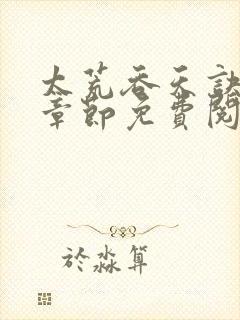 太荒吞天訣
章節免費閱
於淼算